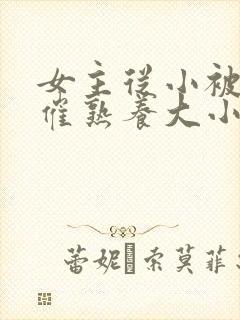 女主從小被
催熟養大小
蕾妮索莫菲